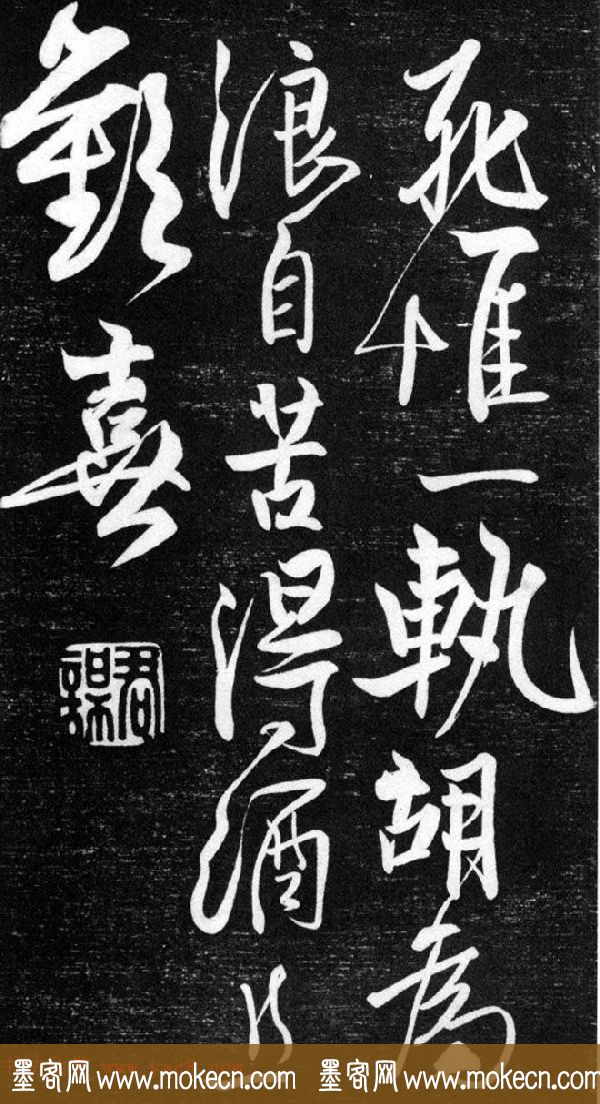 死惟一軌胡為
浪自苦得酒且
歡喜
君謨
墨客网 www.mokecn.com 墨客网 www.mokecn.com